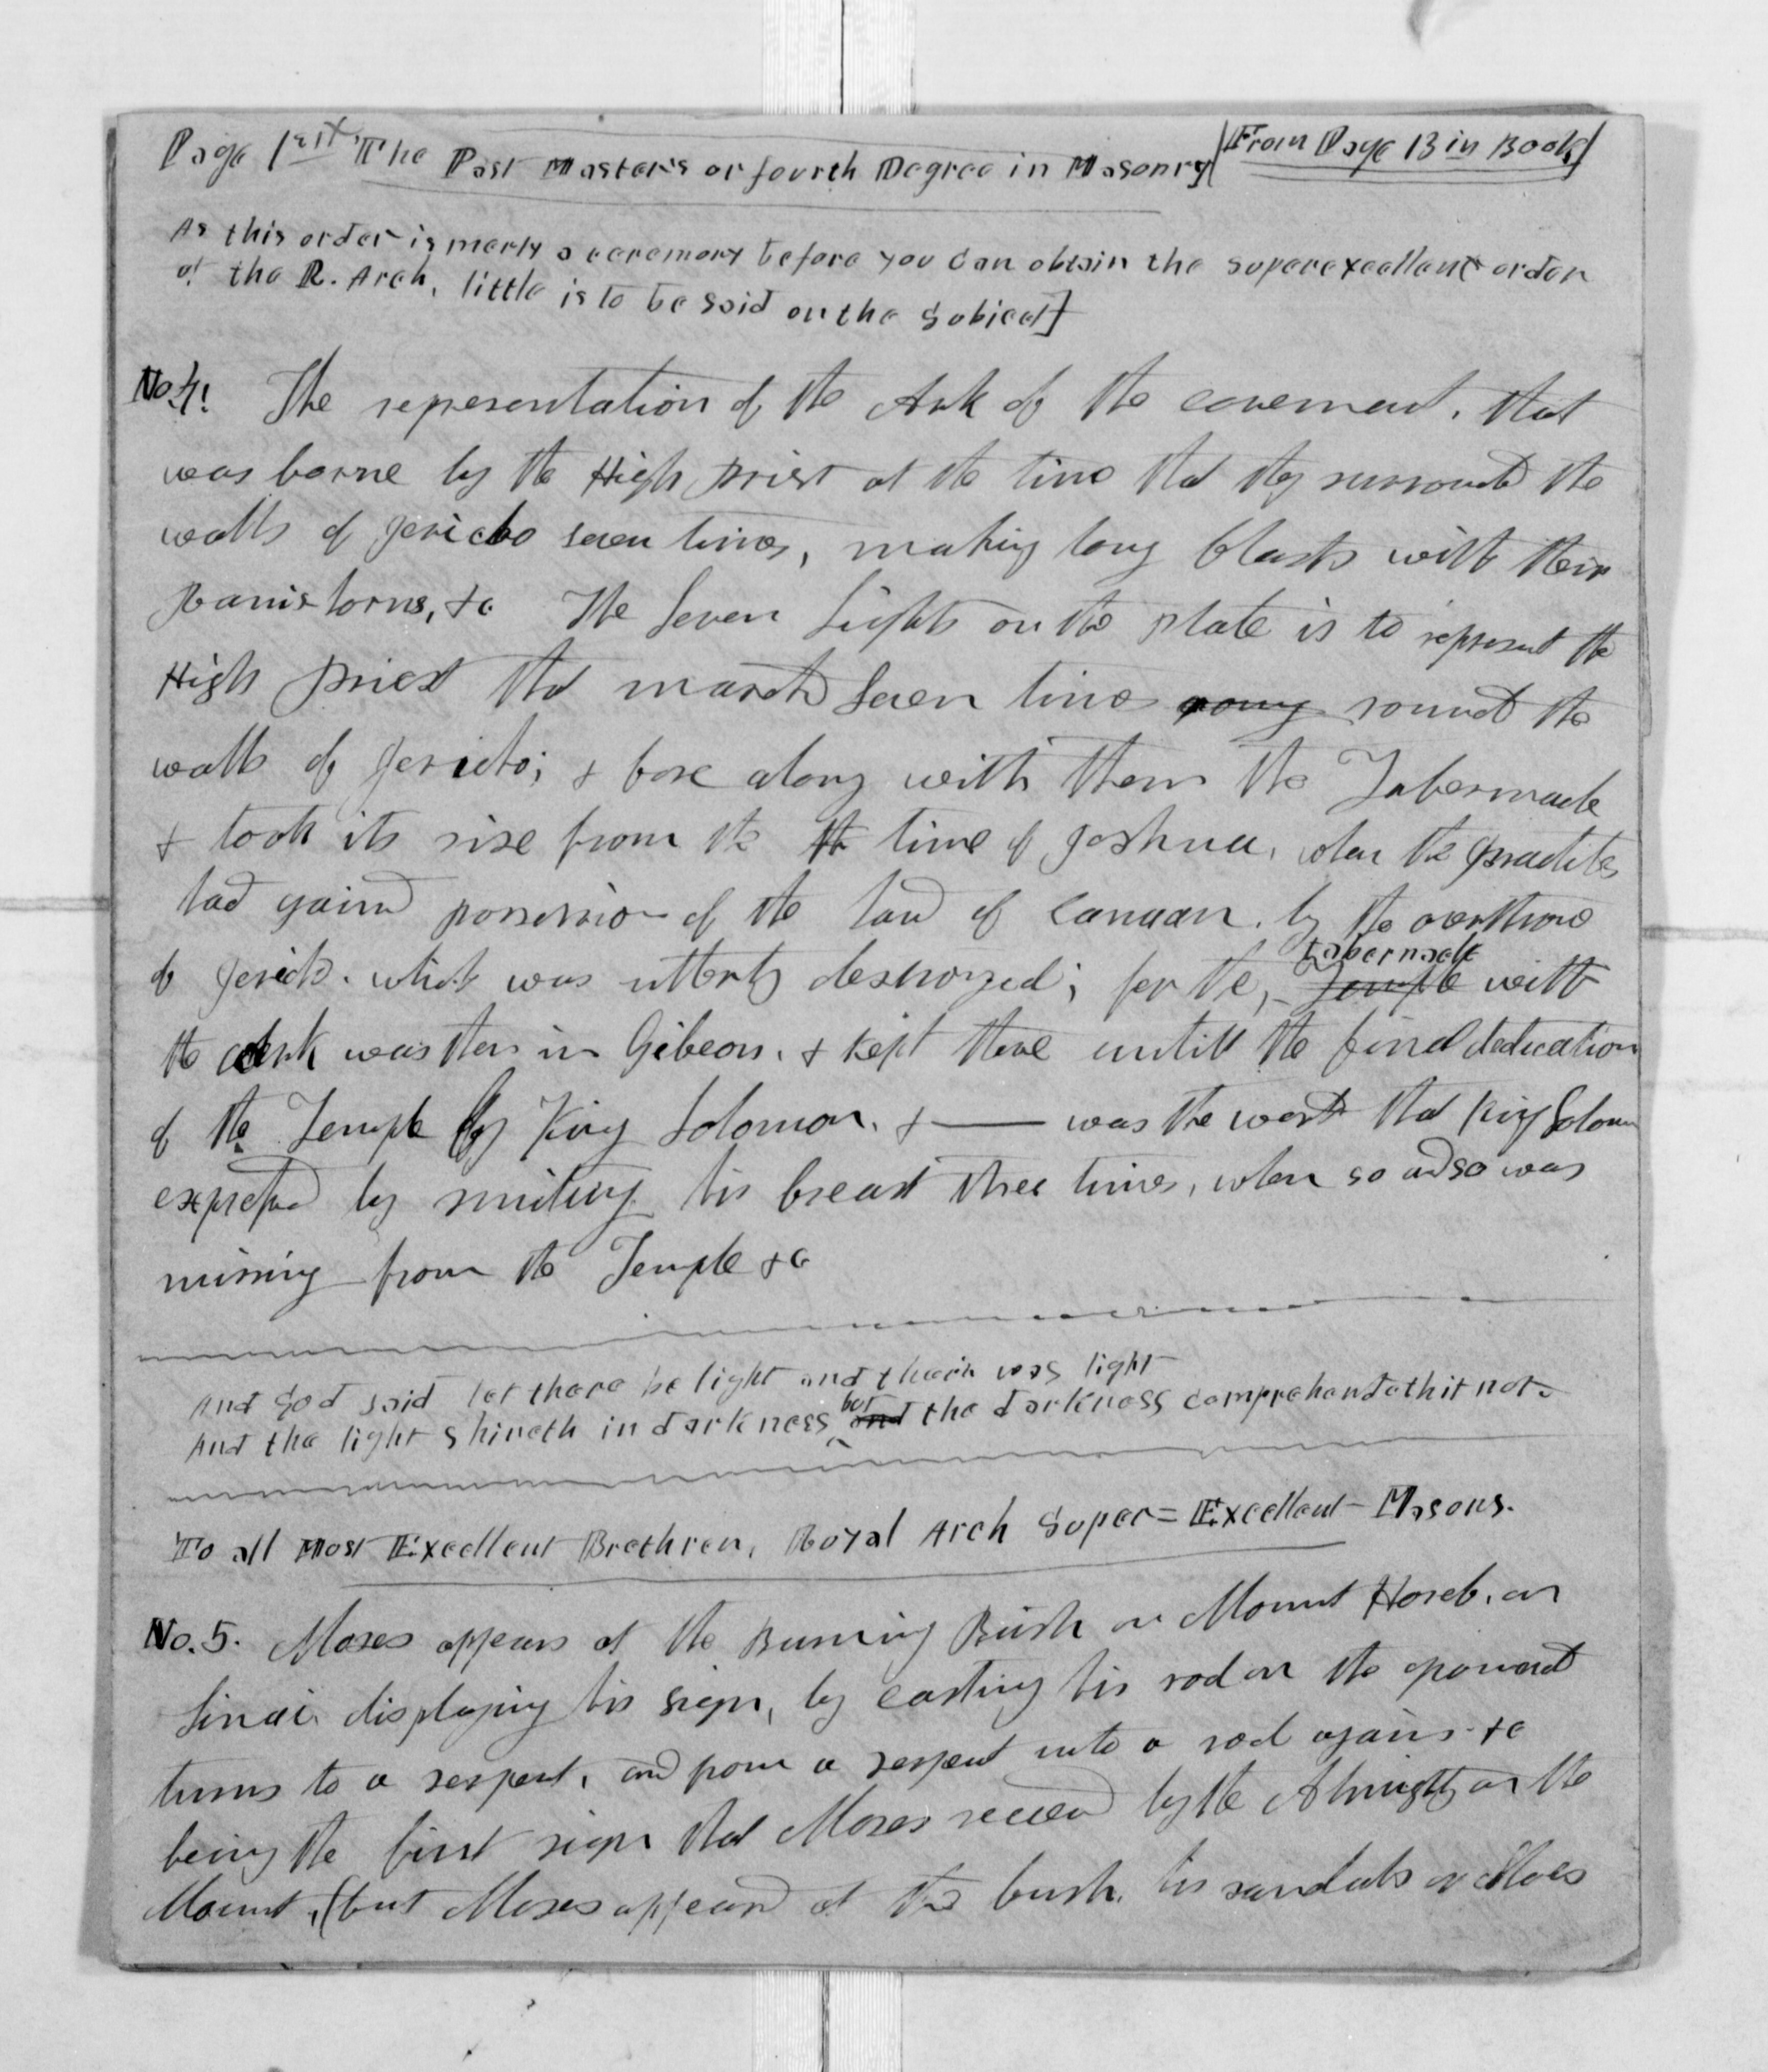 Page 1rst. The Past Master's or fourth Degree in Masonry [From Page 13 in Book]
As this order is merly a ceremony before you can obtain the superexcellent order
of the R. Arch, little is to be said on the Subject]
No. 4. The representation of the Ark of the covernent, that
was borne by the High priest at the time that they surrounded the
walls of Jericho seven times, making long blasts with their
Rams horns, &c The Seven Lights on the plate is to represent the
High priest that marchd Seven times round the
walls of Jericho; & bore along with them the Tabernacle
& took its rise from the the time of Joshua, when the Israelites
had gaind possession of the land of Canaan. by the overthrow
of Jericho. which was utterly destroyed; for the, Temple tabernacle with
the Ark was then in Gibeon. & kept there untill the final dedication
of the Temple by King Solomon. & —— was the word that King Solomon
expressd by smiting his breast three times, when so and so was
missing from the Temple &c
And God said let there be light and there was light
And the light shineth in darkness, and but the darkness comprehendeth it not.
To all Most Excellent Brethren, Royal Arch Super=Excellent Masons.
No. 5. Moses appears at the Burning Bush on Mount Horeb, or
Sinai displaying his sign, by casting his rod on the ground
turns to a serpent, and from a serpent into a rod again &c
being the first sign that Moses receivd by the Almighty on the
Mount, (but Moses appeard at the bush, his sandals or Shoes